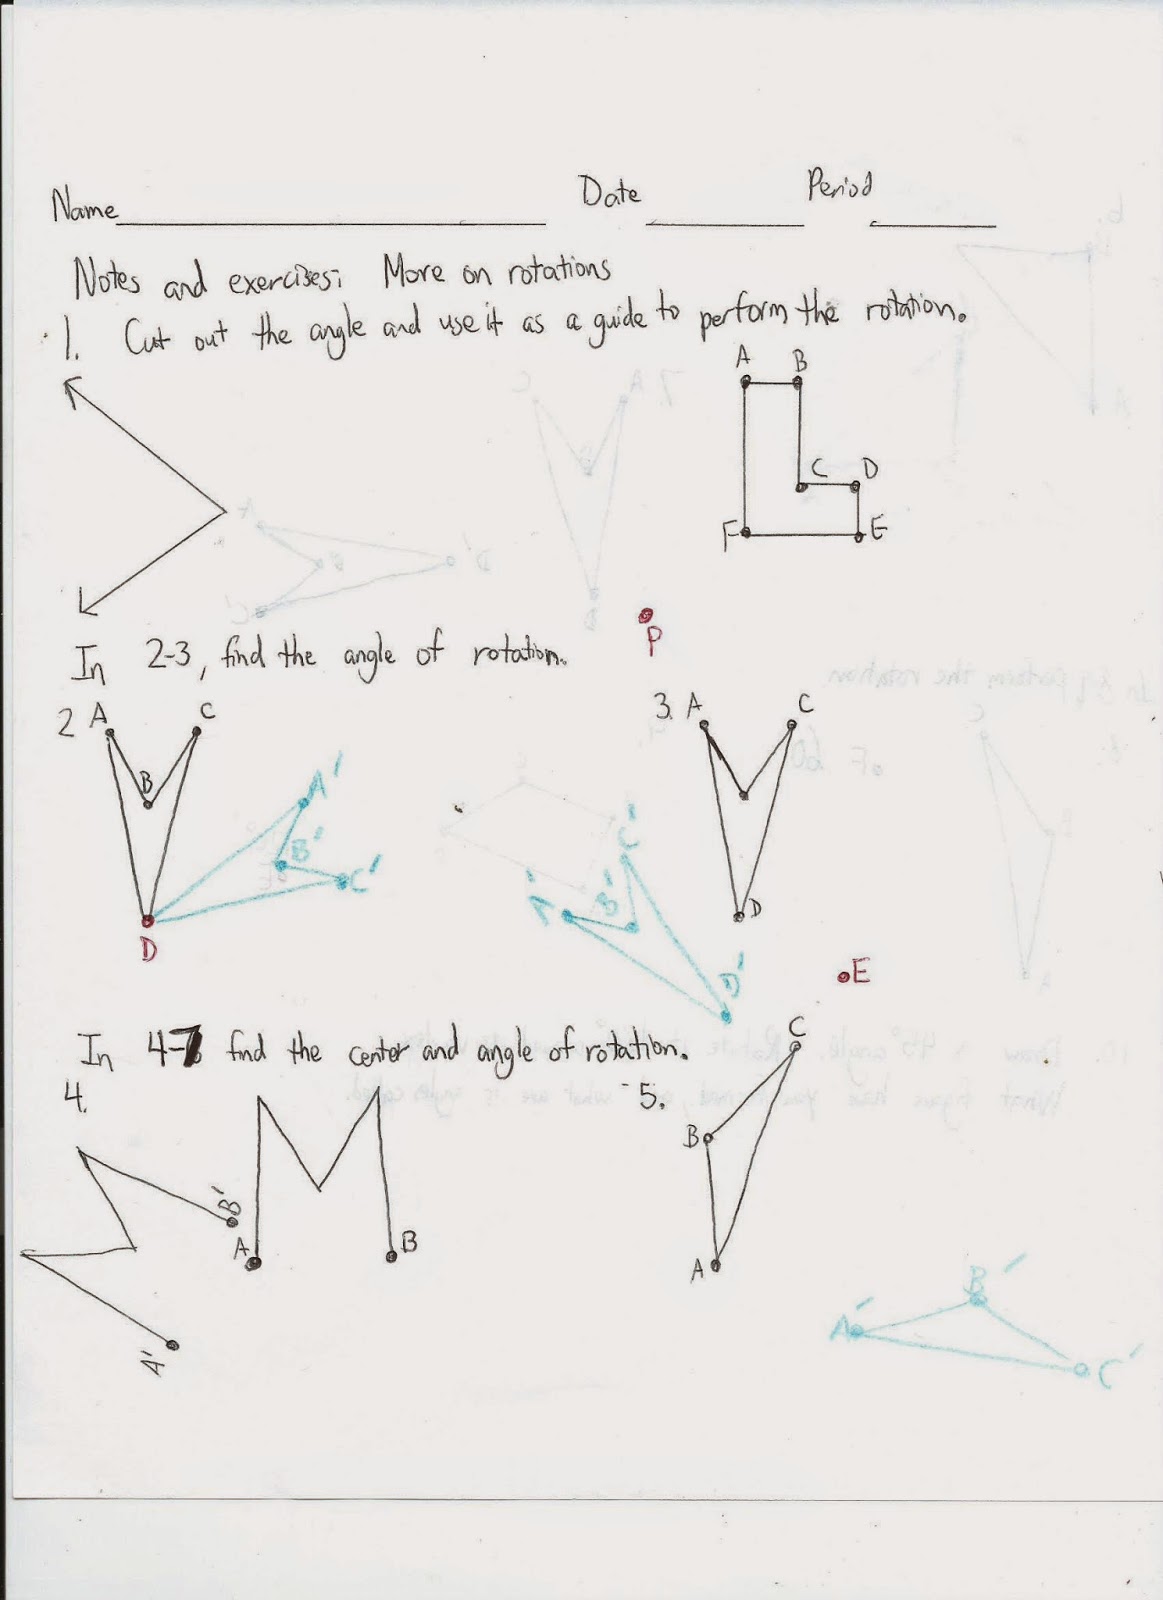 Name Date Period
Notes and exercises: More on rotations
1. Cut out the angle and use it as a guide to perform the rotation.
A B
C D
F E
P
In 2-3, find the angle of rotation.
2 A C
B
A'
B'
C'
D
3. A C
D
C'
B'
D'
E
In 4-7 find the center and angle of rotation.
4.
B'
A B
A'
5. C
B
A
B'
A'
C'